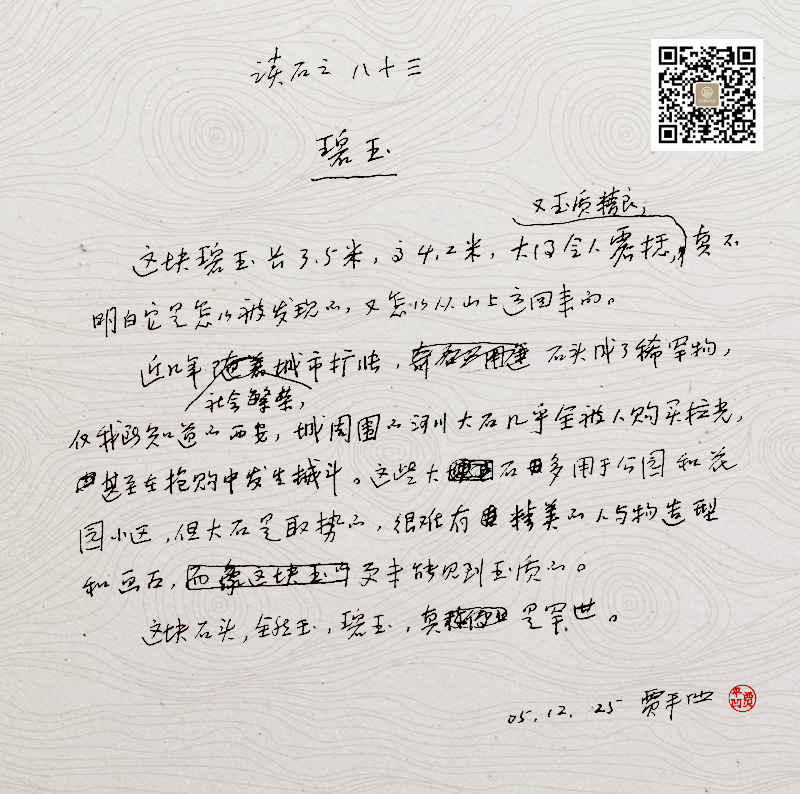 读石之八十三
碧玉
又玉质精良，
这块碧玉长3.5米，高4.2米，大得令人震撼，真不
明白它是怎么被发现的，又怎么从山上运回来的。
近几年 城市扩张， 石头成了稀罕物，
社会繁荣，
仅我所知道的西安，城周围的河川大石几乎全被人购买拉光，
甚至在抢购中发生械斗。这些大 石 多用于公园和花
园小区，但大石是取势的，很难有 精美的人与物造型
和画面，而像这块玉 更未能见到玉质的。
这块石头，全然玉，碧玉，真 是罕世。
05.12.25 贾平凹
贾平凹